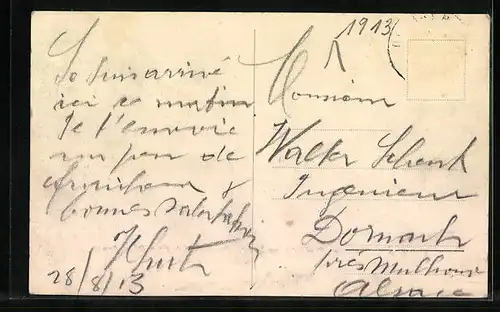 1913
Je suis arrivé
ici ce matin
Je t'envoie
un peu de
&
bonnes salutations
28/8/13
Monsieur
Walter Schenk
Ingenieur
Dornach
près Mulhouse
Alsace